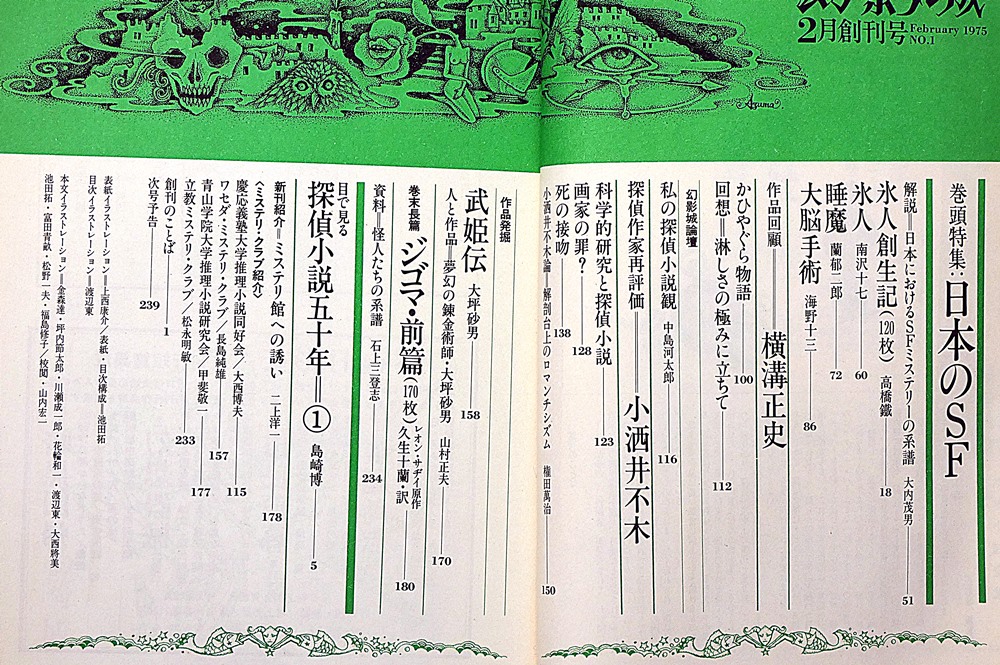 2月創刊号
February 1975
NO.1
Azuma
巻頭特集:日本のSF
解説―日本におけるSFミステリーの系譜 大内茂男 51
氷人創生記(120枚) 高橋鐵 18
氷人 南沢十七 60
睡魔 蘭郁二郎 72
大脳手術 海野十三 86
作品回顧 横溝正史
かひやぐら物語 100
回想=淋しさの極みに立ちて 112
幻影城論壇
私の探偵小説観 中島河太郎 116
探偵作家再評価 小酒井不木
科学的研究と探偵小説 123
画家の罪? 128
死の接吻 138
小酒井不木論=解剖台上のロマンチシズム 権田萬治 150
作品発掘
武姫伝 大坪砂男 158
人と作品=夢幻の錬金術師・大坪砂男 山村正夫 170
巻末長篇 ジゴマ・前篇(170枚) レオン・サヂイ原作 久生十蘭・訳 180
資料=怪人たちの系譜 石上三登志 234
目で見る
探偵小説五十年=① 島崎博 5
新刊紹介=ミステリ館への誘い 二上洋一 178
〈ミステリ・クラブ紹介〉
慶応義塾大学推理小説同好会/大西博夫 115
ワセダ・ミステリ・クラブ/長島純雄 157
青山学院大学推理小説研究会/甲斐敬一 177
立教ミステリ・クラブ/松永明敏 233
創刊のことば 1
次号予告 239
表紙イラストレーション=上西康介/表紙・目次構成=池田拓
目次イラストレーション=渡辺東
本文イラストレーション=金森達・坪内節太郎・川瀬成一郎・花輪和一・渡辺東・大西將美
池田拓・富田青畝・松野一夫・福島修子/校閲・山内宏二